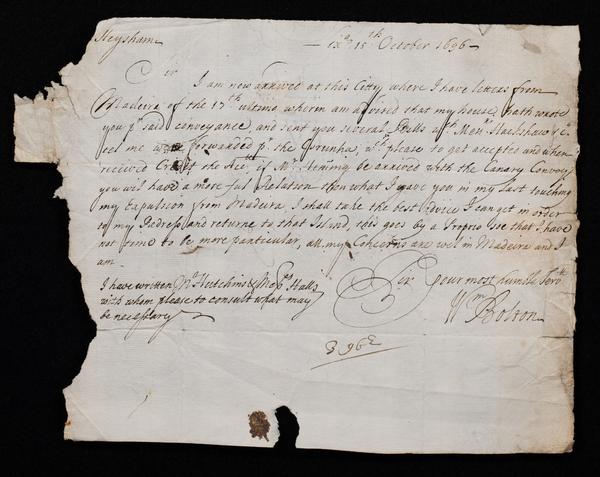 Heysham
15th October 1696
Sir
I am now arrived at this Citty where I have letters from
Madeira of the 17th ultimo wherin am advised that my house hath wrote
you pr said conveyance, and sent you severall Bills
forwarded pr the wch please to get accepted and when
received Credit the Acctt if Mr be arrived with the Canary Convoy
you will have a more full Relation then what I gave you in my last touching
my Expulsion from Madeira, I shall take the best advice I can get in order
to my Redress and returne to that Island, this goes by a Propio soe that I have
not time to be more particular, all my Concerns are well in Madeira and I
am
I have written Hutchins & Halls
with whom please to consult what may
be necessary
Sir your most humble Servtt
Wm Bolton